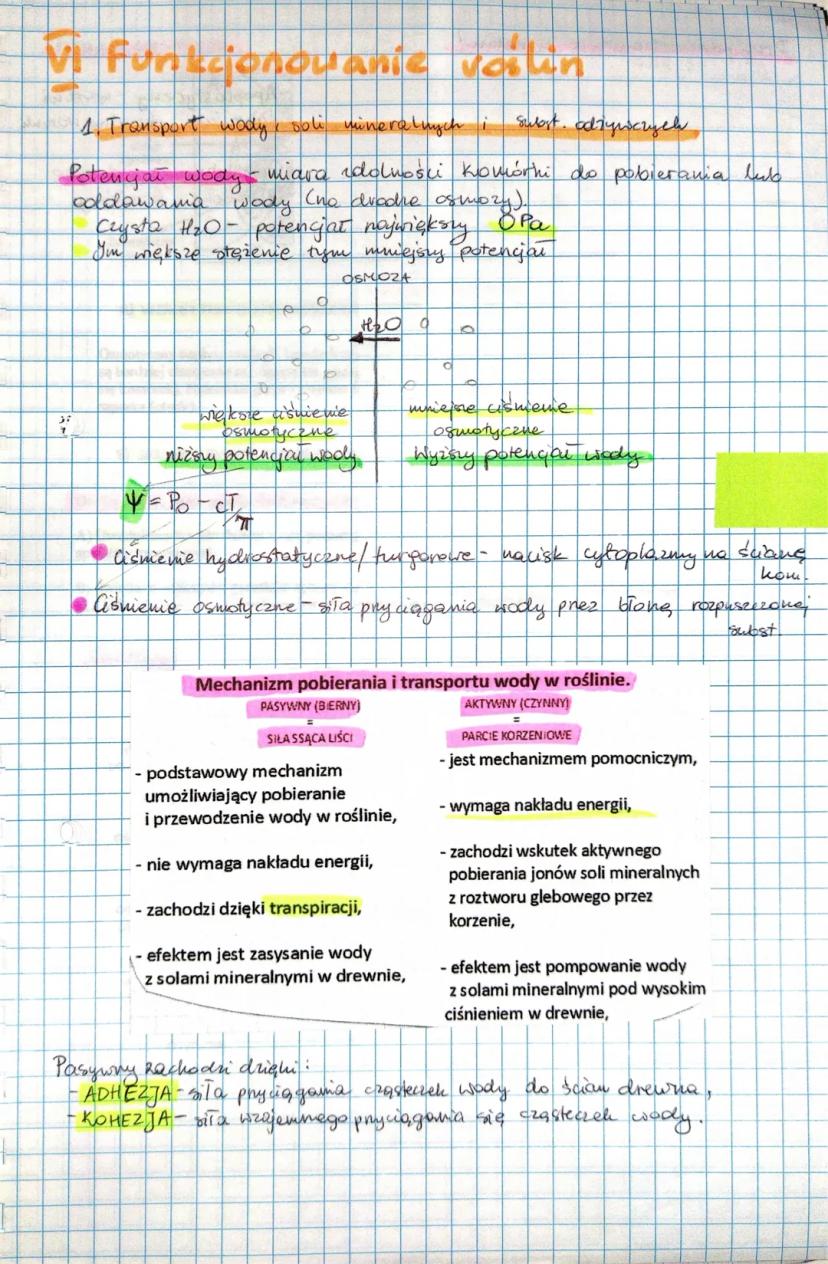 VI Funkcjonowanie roślin
1. Transport wody, soli mineralnych i subst. odżywczych
Potencjał wody - miara zdolności komórki do pobierania lub
oddawania wody (na drodze osmozy).
Czysta H₂O - potencjał największy 0 Pa
Im większe stężenie tym mniejszy potencjał
OSMOZA
H₂O
większe ciśnienie
osmotyczne
niższy potencjał wody
mniejsze ciśnienie
osmotyczne
Wyższy potencjał wody
Ψ = P₀ - cT
π
Ciśnienie hydrostatyczne/turgorowe - nacisk cytoplazmy na ścianę
kom.
Ciśnienie osmotyczne - siła przyciągania wody przez błonę, rozpuszczonej
subst.
Mechanizm pobierania i transportu wody w roślinie.
PASYWNY (BIERNY)
=
SIŁA SSĄCA LIŚCI
- podstawowy mechanizm
umożliwiający pobieranie
i przewodzenie wody w roślinie,
- nie wymaga nakładu energii,
- zachodzi dzięki transpiracji,
- efektem jest zasysanie wody
z solami mineralnymi w drewnie,
AKTYWNY (CZYNNY)
=
PARCIE KORZENIOWE
- jest mechanizmem pomocniczym,
- wymaga nakładu energii,
- zachodzi wskutek aktywnego
pobierania jonów soli mineralnych
z roztworu glebowego przez
korzenie,
- efektem jest pompowanie wody
z solami mineralnymi pod wysokim
ciśnieniem w drewnie,
Pasywny zachodzi dzięki:
- ADHEZJA - siła przyciągania cząsteczek wody do ścian drewna,
- KOHEZJA - siła wzajemnego przyciągania się cząsteczek wody.